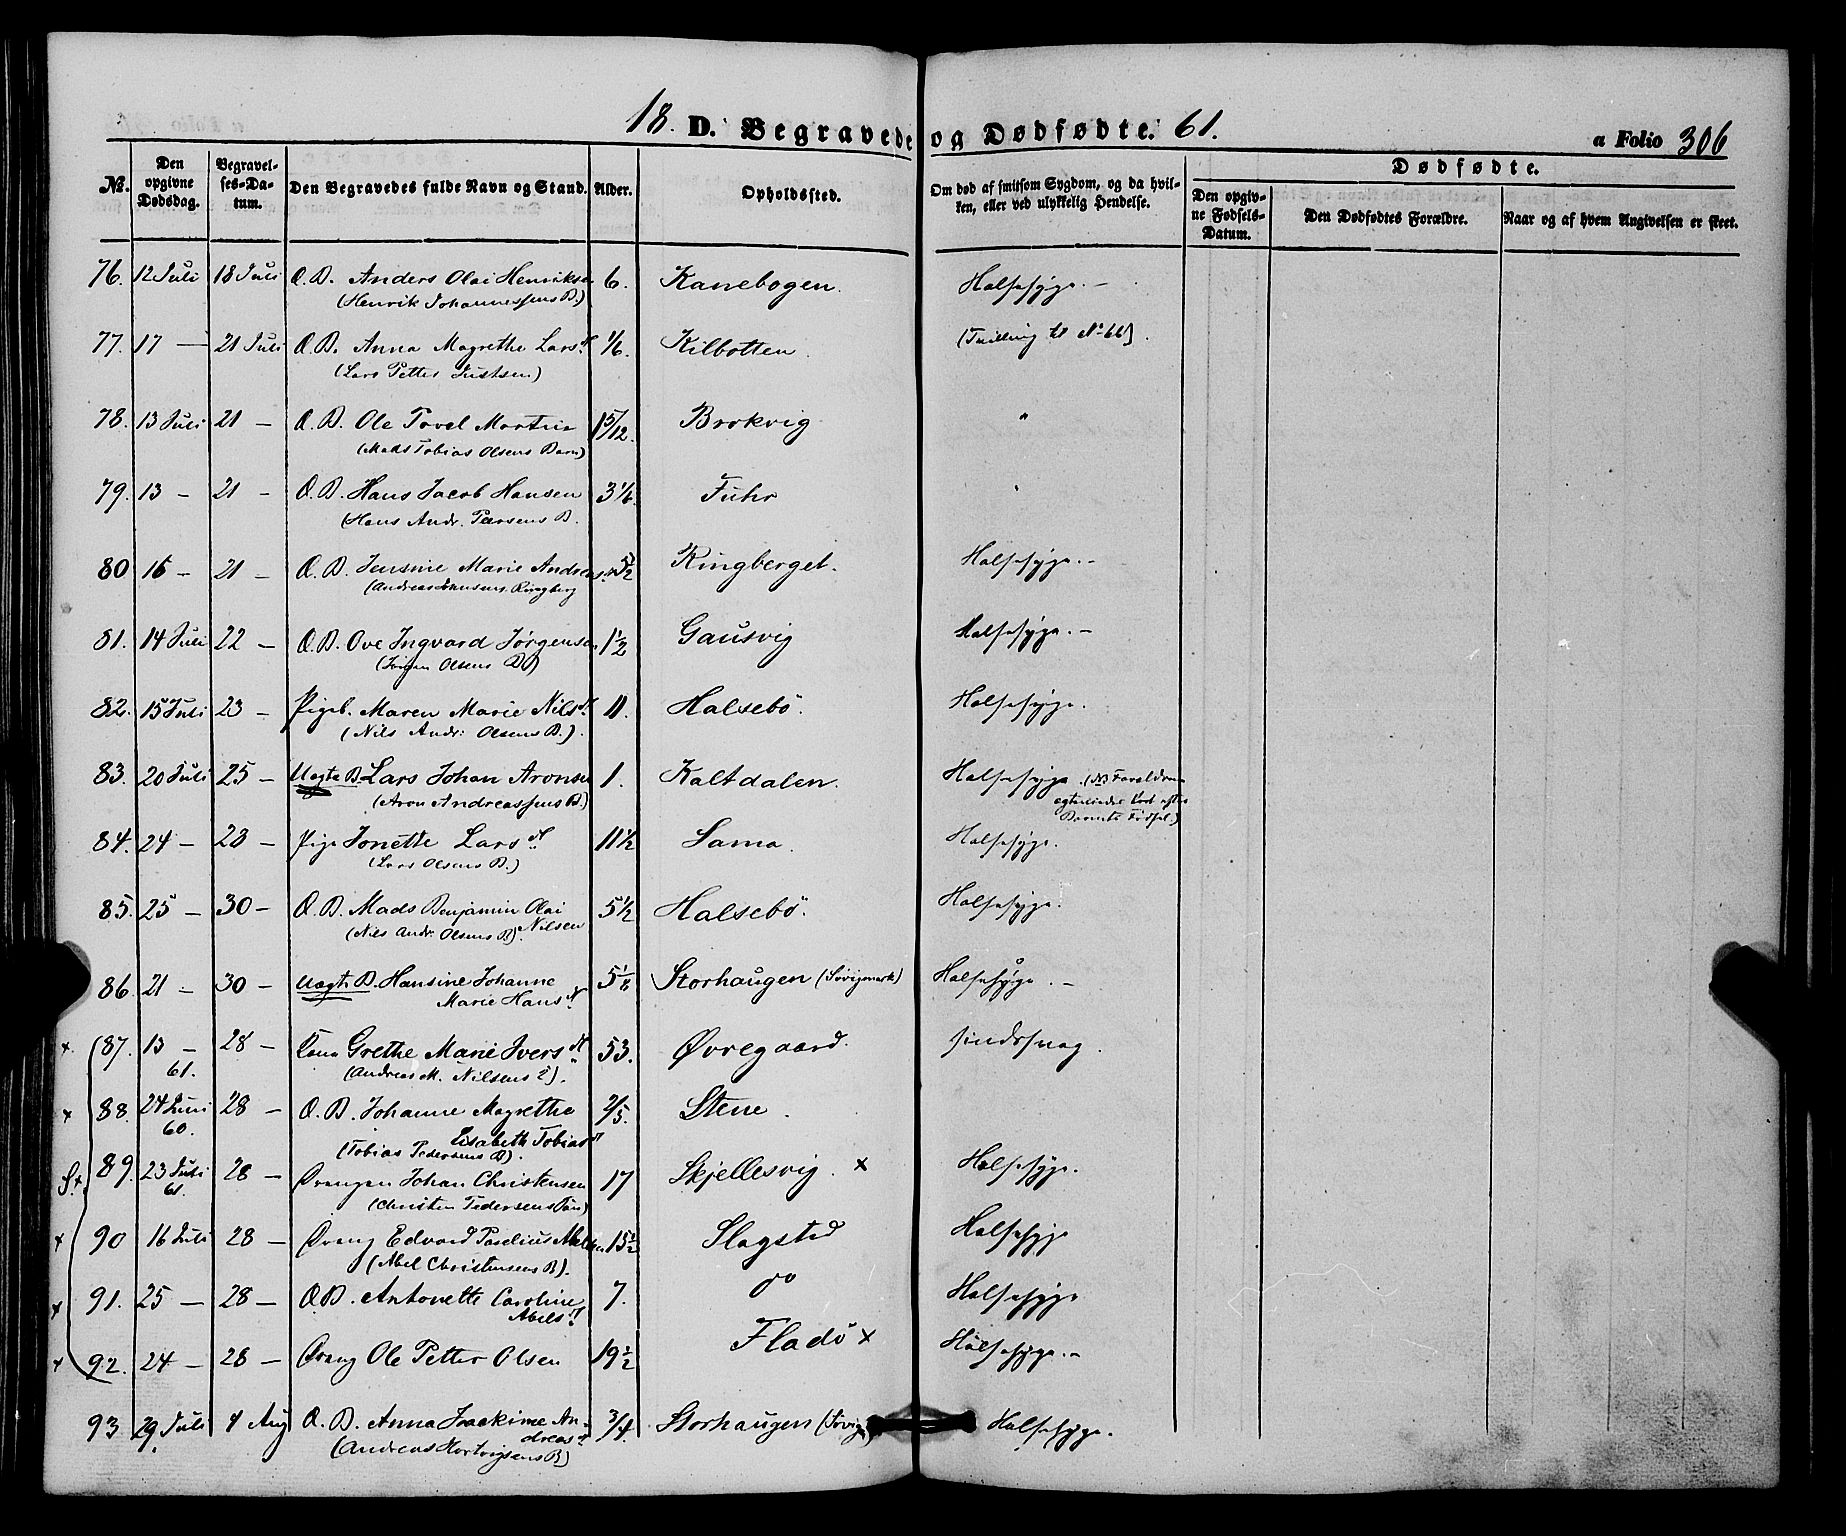 18. D. Begravede og Dødfødte. 61.
a Folio 306
№. Den opgivne Dødsdag. Begravelses-Datum. Den Begravedes fulde Navn og Stand. Alder. Opholdssted. Om død af smitsom Sygdom, og da hvilken, eller ved ulykkelig Hendelse. Dødfødte.
Den opgivne Fødsels-Datum. Den Dødfødtes Forældre. Naar og af hvem Angivelsen er skeet.
76. 12 Juli 18 Juli Æ. B. Anders Olai Henriksen 6. Kanebogen. Halsesyge. -
(Henrik Johannessens B.)
77. 17 — 21 Juli Æ. B. Anna Magrethe Larsd. 1/6. Kilbotten. (Tvilling til No 66).
(Lars Petter Justsen)
78. 13 Juli 21 - Æ. B. Ole Povel Martin 1 5/12. Brokvig "
(Mads Tobias Olsens Barn)
79. 13 - 21 - Æ. B. Hans Jacob Hansen 3 1/6. Fuhr "
(Hans Andr. Pedersens B.
80 16 - 21 - Æ. B. Jensine Marie Andreas Ringberget. Halsesyge. -
(Andreas Hansens Ringberg
81. 14 Juli 22 - Æ. B. Ove Ingvard Jørgensen 1 1/2 Gausvig Halsesyge. -
(Jørgen Olsens B)
82. 15 Juli 23 - Pigeb. Maren Marie Nilsd. 11. Halsebö. Halsesyge.
(Nils Andr: Olsens B.).
83. 20 Juli 25 - Uægte B. Lars Johan Aronsen 1. Kaltdalen. Halsesyge. (NB Forældrene
(Aron Andreassens B.) egteviedes kort efter
Barnets Fødsel.)
84. 24 - 28 - Pige Jonette Larsd. 11 1/2 Sama. Halsesyge.
(Lars Olsens B.)
85. 25 - 30 - Æ. B. Mads Benjamin Olai 5 1/2 Halsebö. Halsesyge.
(Nils Andr. Olsens B). Nilsen
86. 21 - 30 - Uægte B. Hansine Johanne 5 1/6 Storhaugen (Sørvigmark) Halsesyge. -
Marie Hansd.
x. 87. 13 - 28 - Kone Grethe Marie Iversd. 53. Øvregaard. Sindssvag.
61. (Andreas M. Nilsens).
x 88. 24 Juni 28 - Æ. B. Johanne Magrethe 2/5. Stene.
60. Elisabeth Tobiasd.
(Tobias Pedersens B).
89. 23 Juli 28 - Drengen Johan Christensen 17 Skjellesvig. x Halsesyge.
61. (Christen Pedersens Søn)
x 90 16 Juli 28 - Dreng Edvard Paulius Abelsen 15 1/2 Slagstad Halsesyge
(Abel Christensens B).
x 91. 25 - 28 - Æ B. Antonette Caroline 7. do Halsesyge
Abelsd.
x 92. 24 - 28 - Dreng Ole Petter Olsen 19 1/2 Fladö x Halsesyge. -
93 29 Juli 4 Aug Æ. B. Anna Joakime An- 3/4. Storhaugen (Sørvig Halsesyge.
dreasd.
(Andreas Hartvigsens B)